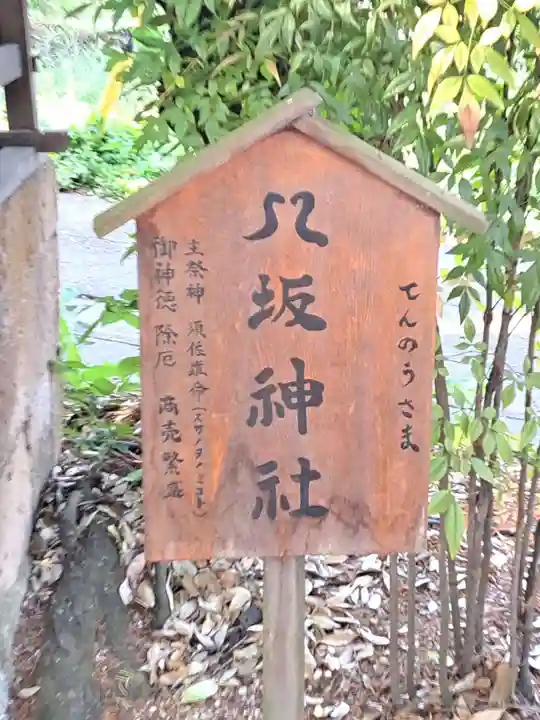 てんのうさま
八坂神社
主祭神 須佐雄命(スサノヲノミコト)
御神徳 除厄 商売繁盛